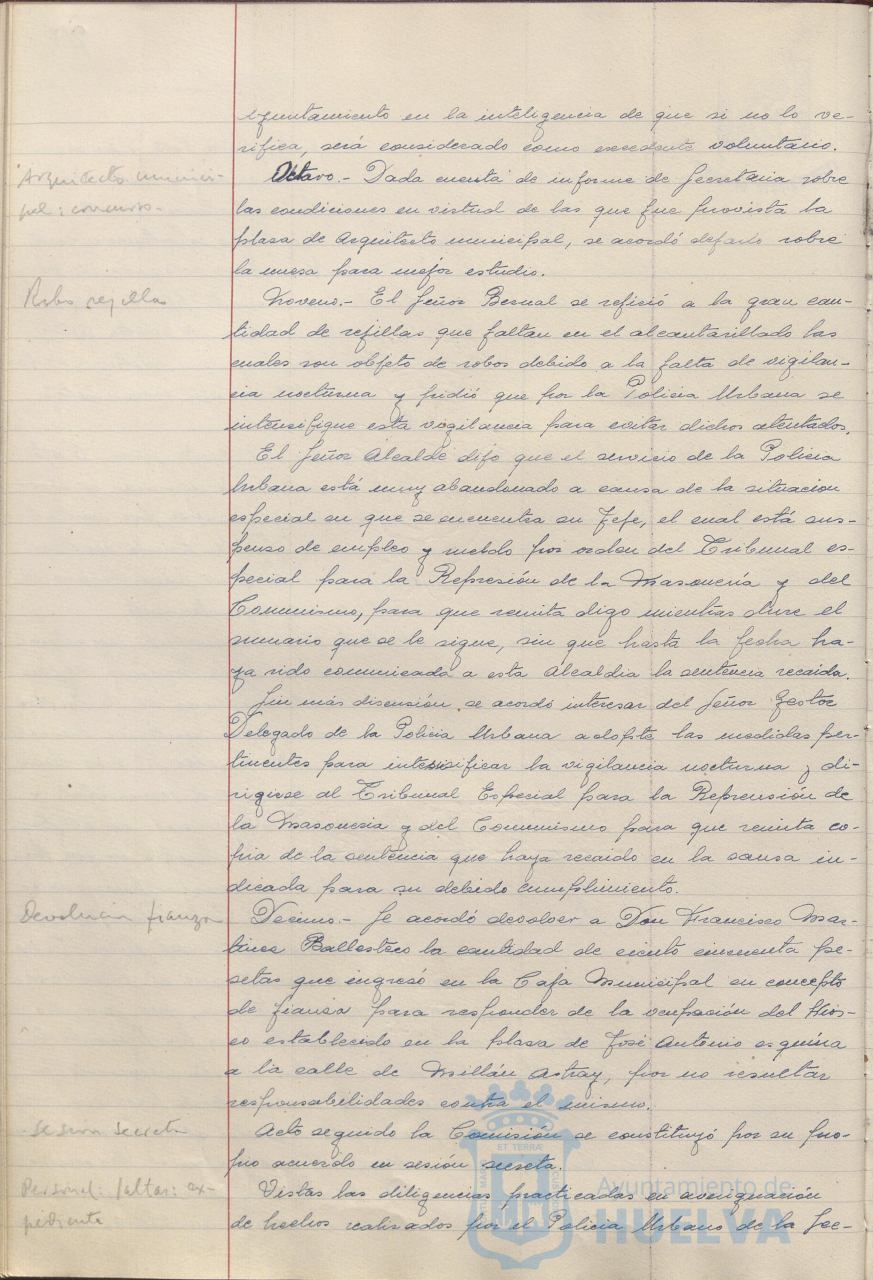 Ayuntamiento en la inteligencia de que si no lo ve-
rifica, será considerado como excedente voluntario.
Arquitecto munici-
pal: concurso-
Octavo.- Dada cuenta de informe de Secretaria sobre
las condiciones en virtud de las que fue provista la
plasa de Arquitecto municipal, se acordó dejarlo sobre
la mesa para mejor estudio.
Robo rejillas
Noveno.- El Señor Bernal se refirió a la gran can-
tidad de rejillas que faltan en el alcantarillado las
cuales son objeto de robos debido a la falta de vigilan-
cia nocturna y pidió que por la Policia Urbana se
intensifique esta vigilancia para evitar dichos atentados.
El Señor Alcalde dijo que el servicio de la Policia
Urbana está muy abandonado a causa de la situacion
especial en que se encuentra su Jefe, el cual está sus-
penso de empleo y sueldo por orden del Tribunal es-
pecial para la Represión de la Masonería y del
Comunismo, para que remita digo mientras dure el
sumario que se le sigue, sin que hasta la fecha ha-
ya sido comunicada a esta Alcaldia la sentencia recaida.
Sin más discusión se acordó interesar del Señor Gestor
Delegado de la Policia Urbana adopte las medidas per-
tinentes para intensificar la vigilancia nocturna y di-
rigirse al Tribunal Especial para la Reprensión de
la Masoneria y del Comunismo para que remita co-
pia de la sentencia que haya recaido en la causa in-
dicada para su debido cumplimiento.
Devolucion fianza
Decimo.- Se acordó devolver a Don Francisco Mar-
tinez Ballestero la cantidad de ciento cincuenta pe-
setas que ingresó en la Caja Municipal en concepto
de fianza para responder de la ocupación del Kios-
co establecido en la plasa de José Antonio esquina
a la calle de Millán Astray, por no resultar
responsabilidades contra el mismo.
Sesion secreta
Acto seguido la Comisión se constituyó por su pro-
pio acuerdo en sesión secreta.
Personal: faltas: ex-
pediente
Vistas las diligencias practicadas en averiguación
de hechos realizados por el Policia Urbano de la Sec-
ET TERRÆ
Ayuntamiento de
HUELVA